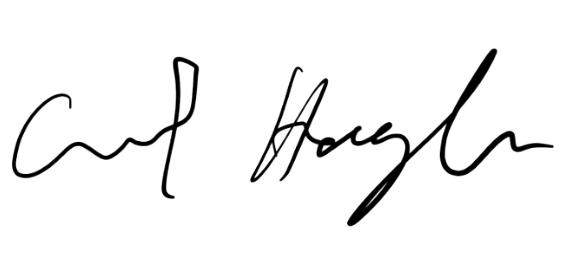 Carl Hagelin